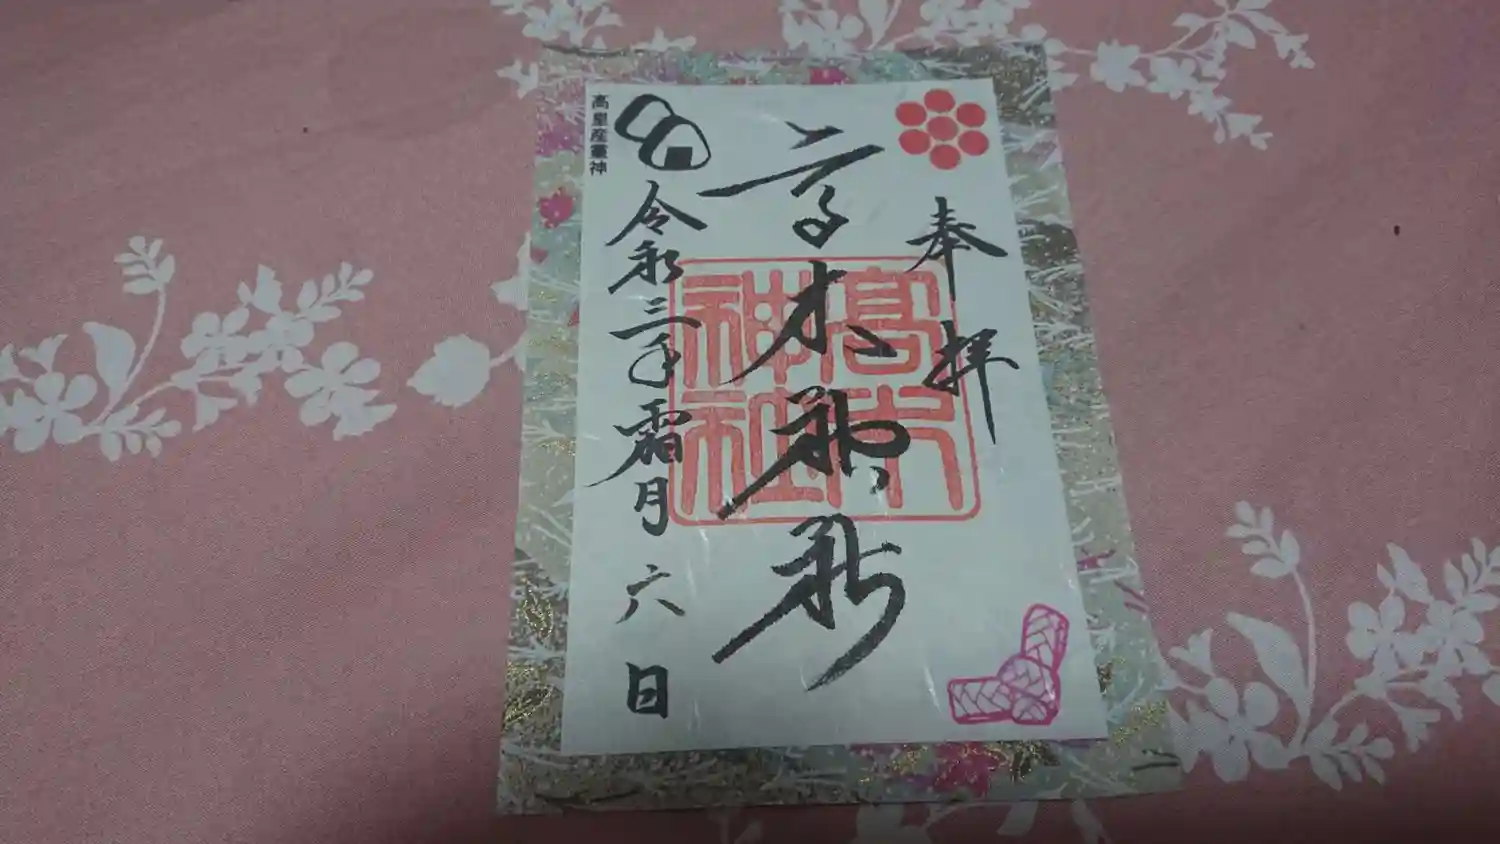 奉拝
高木神社
高木神社
令和三年霜月六日
高皇産霊神